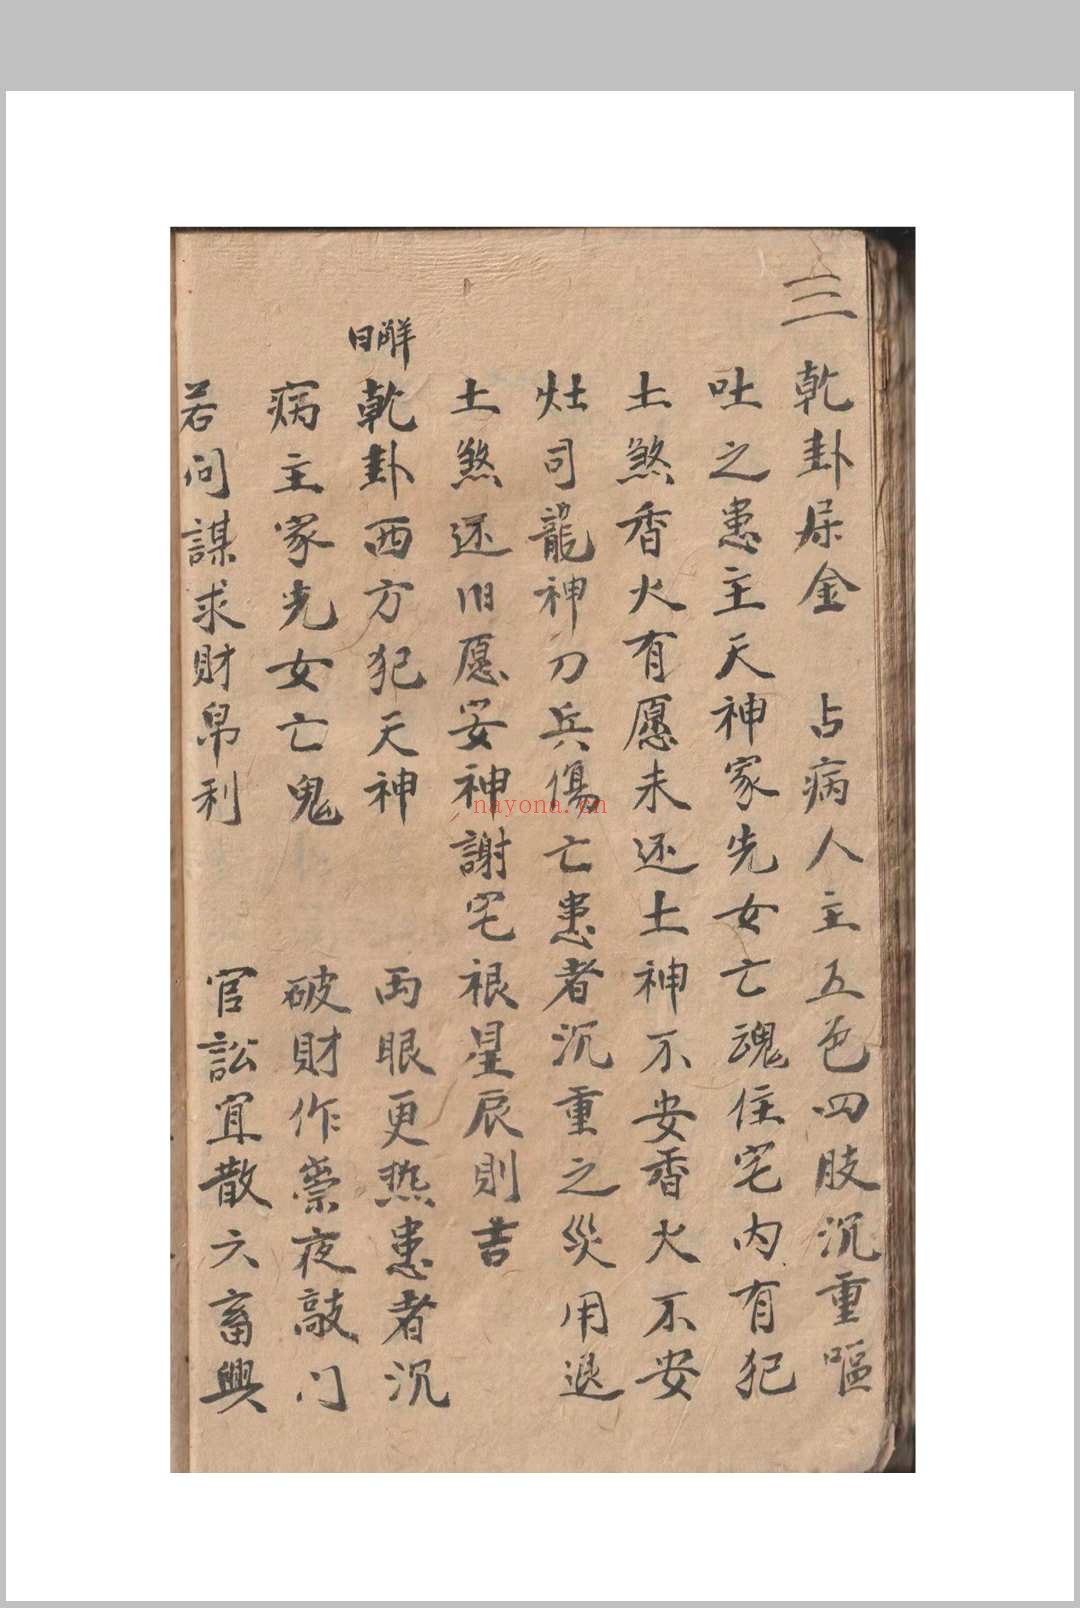 ☰
乾卦屬金 占病人主五色四肢沉重嘔
吐之患主天神家先女亡魂住宅内有犯
土煞香火有愿未还土神不安香火不安
灶司龍神刀兵傷亡患者沉重之災用退
土煞还旧愿妥神謝宅禳星辰則吉
解曰
乾卦西方犯天神 両眼更热患者沉
病主家先女亡鬼 破財作祟夜敲门
若问謀求財帛利 官訟宜散六畜興
nayona.cn